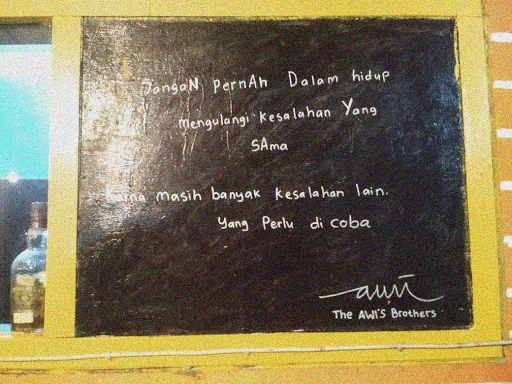 JangaN PernAh Dalam hidup
mengulangi kesalahan Yang
SAma
masih banyak kesalahan lain.
Yang Perlu di coba
awi
The AWI'S Brothers